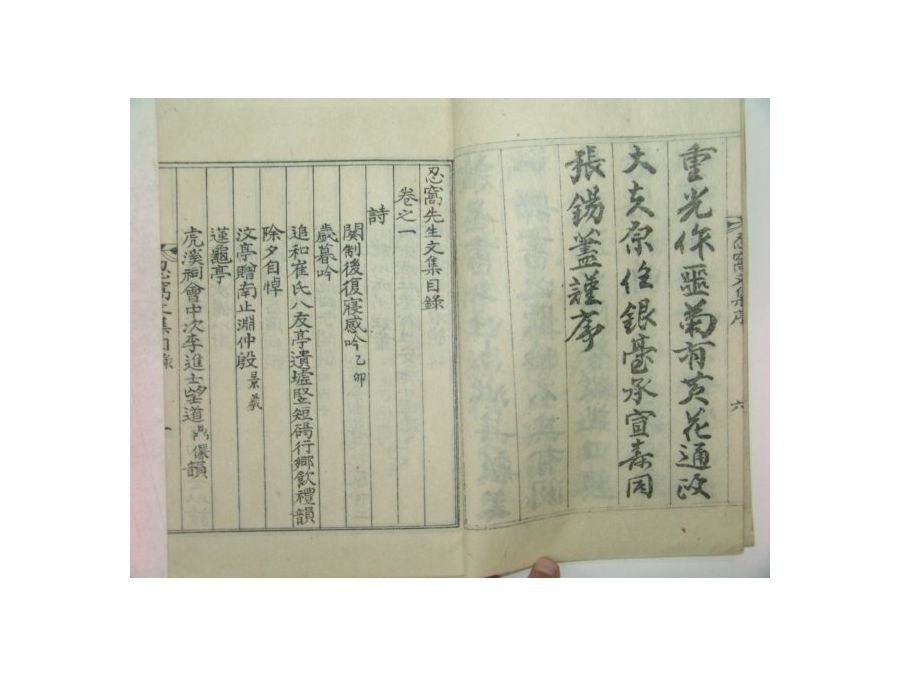 忍窩文集序 六
重光作噩菊有黃花通政
大夫原任銀臺承宣壽同
張錫藎謹序
忍窩先生文集目錄
卷之一
詩
闋制後復寢感吟 乙卯
歲暮吟
追和崔氏八友亭遺墟竪短碣行鄉飮禮韻
除夕自悼
汶亭贈南止淵仲殷 景羲
蓮龜亭
虎溪祠會中次李進士望道 韻
忍窩文集目錄 一